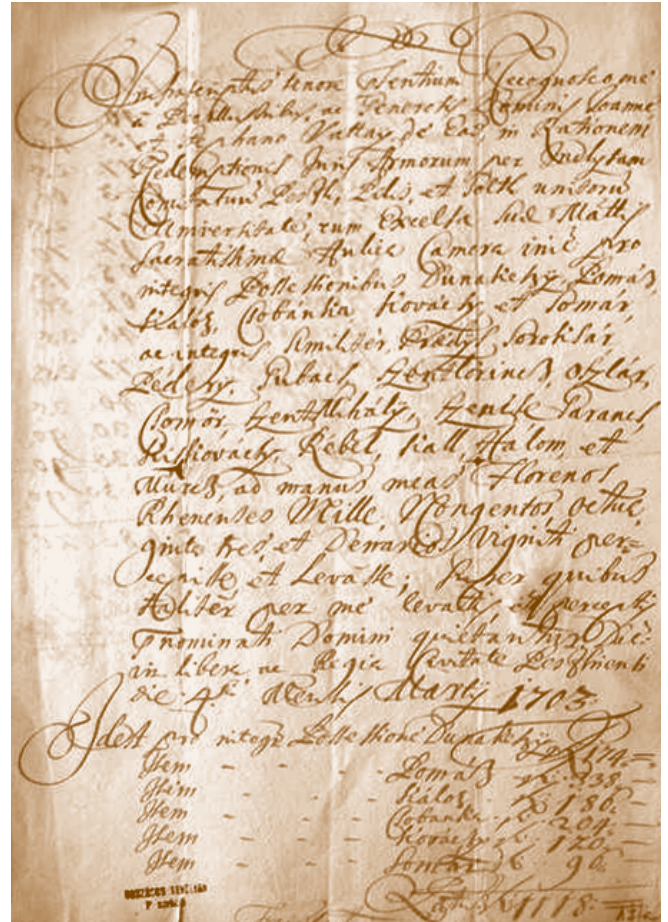 Infrascriptus tenore Pñtium Recognosco me
à Perillustribus, ac Generosis Dominis Joanne
et Stephano Vattay de Eadẽ in Rationem
Redemptionis Juris Armorum per Inclytam
Comitatuũ Pesth, Pilis, et Solth unitorũ
Universitatẽ, cum Excelsa Suæ Mattis
Sacratissimæ Aulica Camera initæ pro
integris Possessionibus Dunakeszy, Pomáz,
Kalóz, Csobánka, Kovácsy, et Tornár,
ac integris similiter Prædys, Soroksár
Pédeny, Szent Lõrincz, Oszlár,
Csömör, Szent Mihály,
Kiskovácsy, Kebel, Halom, et
ad manus meas Florenos
Rhenenses Mille, Nongentos, octua,
ginta tres, et Denarios viginti per=
cepisse et Levasse; super quibus
taliter per me levatis, et perceptis
prænominati Domini quietantur
in libera, ac Regia Civitate Pesthiensi
die 4ta Mensis Martij 1703.
Idest pro integra Possessione Dunakeszy 174.=
Item - - - - Pomáz 338.
Item - - - - Kalóz 186.
Item - - - - Csobánka 204.
Item - - - - Kovácsy 120.
Item - - - - 96.
Latus 1118.
ORSZÁGOS LEVÉLTÁR